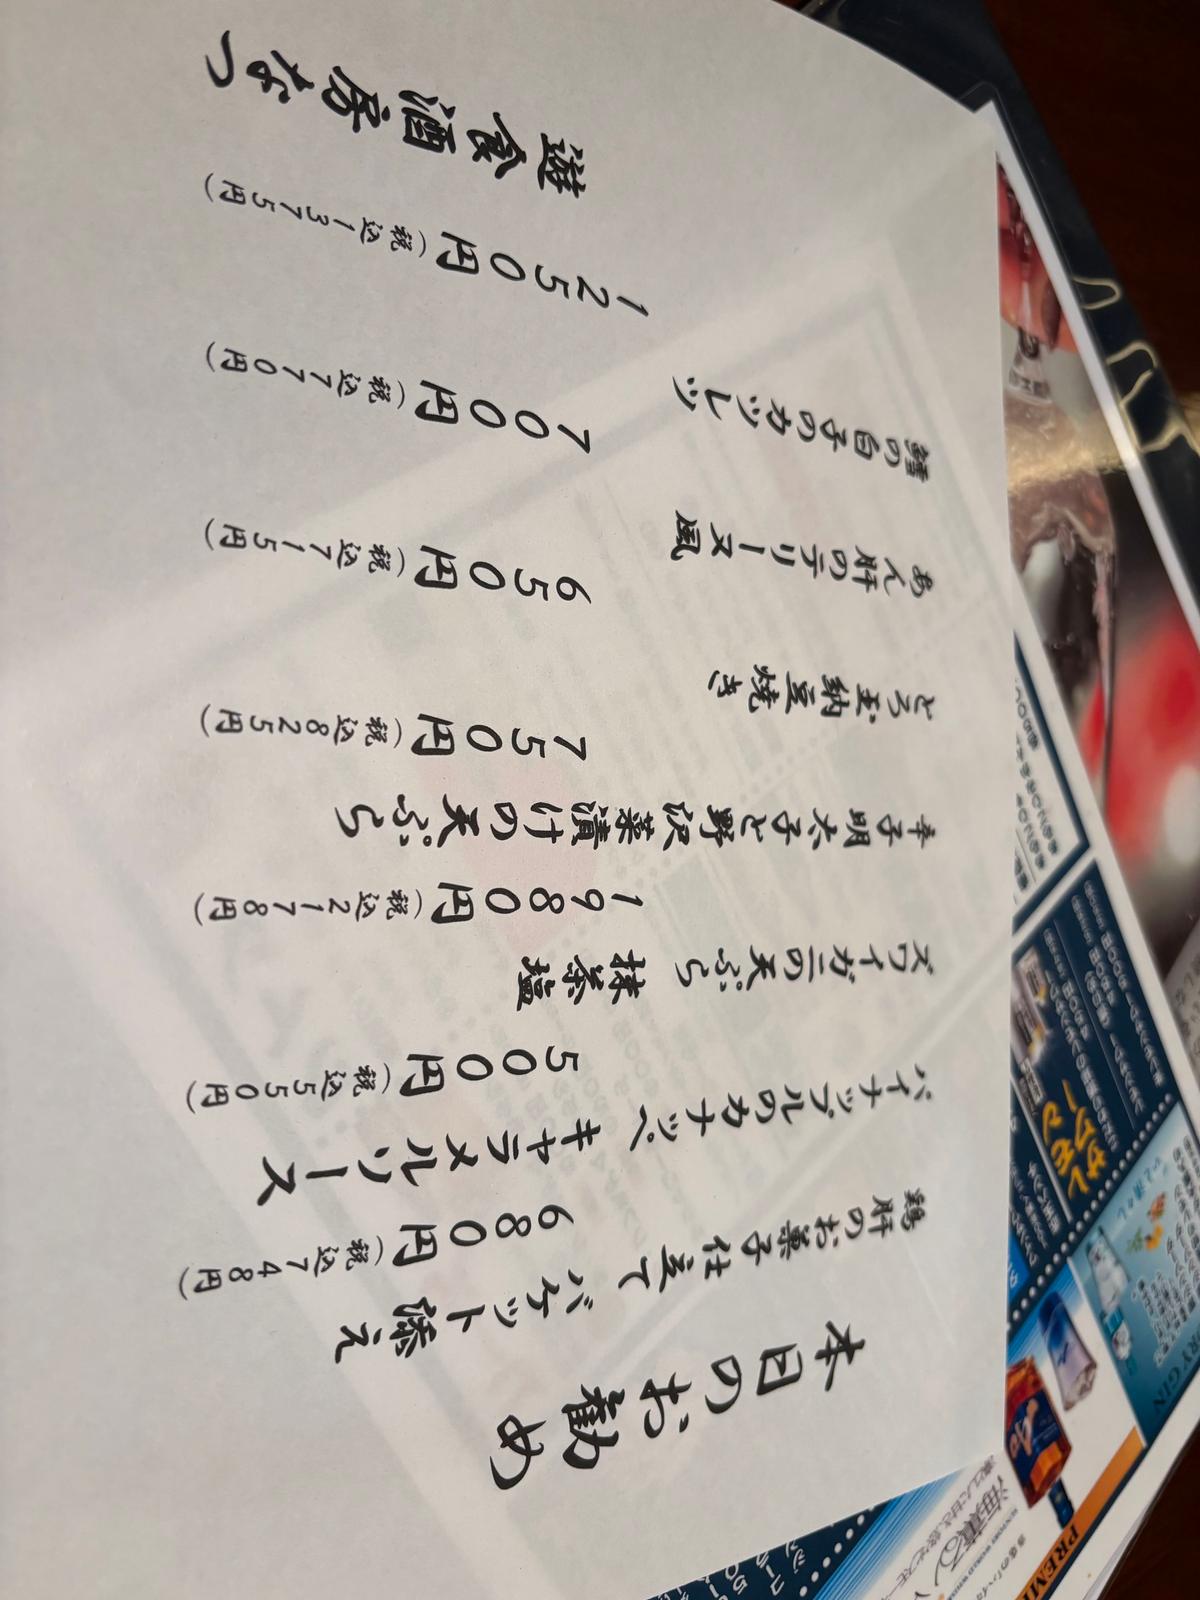 本日のお勧め
鶏肝のお菓子仕立て バケット添え
680円(税込748円)
パイナップルのカナッペ キャラメルソース
500円(税込550円)
ズワイガニの天ぷら 抹茶塩
1980円(税込2178円)
辛子明太子と野沢菜漬けの天ぷら
750円(税込825円)
とろ玉納豆焼き
650円(税込715円)
あん肝のテリーヌ風
700円(税込770円)
鱈の白子のカツレツ
1250円(税込1375円)
遊食酒房なつ
PREMI
RY GIN
海薫る